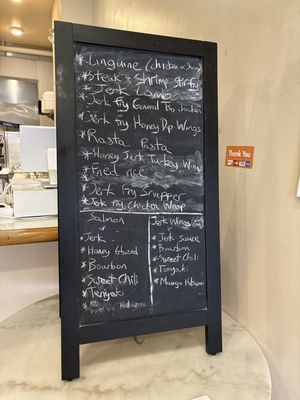 * Linguine (Chicken or Shrimp)
* Steak & Shrimp Stir fry
* Jerk Lamb
* Jerk Fry General Tso chicken
* Jerk Fry Honey Dip Wings
* Rasta Pasta
* Honey Jerk Turkey Wing
* Fried rice
* Jerk Fry Snapper
* Jerk Fry Chicken Wrap
Salmon
* Jerk
* Honey Glazed
* Bourbon
* Sweet Chili
* Teriyaki
* Habanero
Jerk Wings
* Jerk Sauce
* Bourbon
* Sweet Chili
* Teriyaki
* Mango Habanero
Thank You